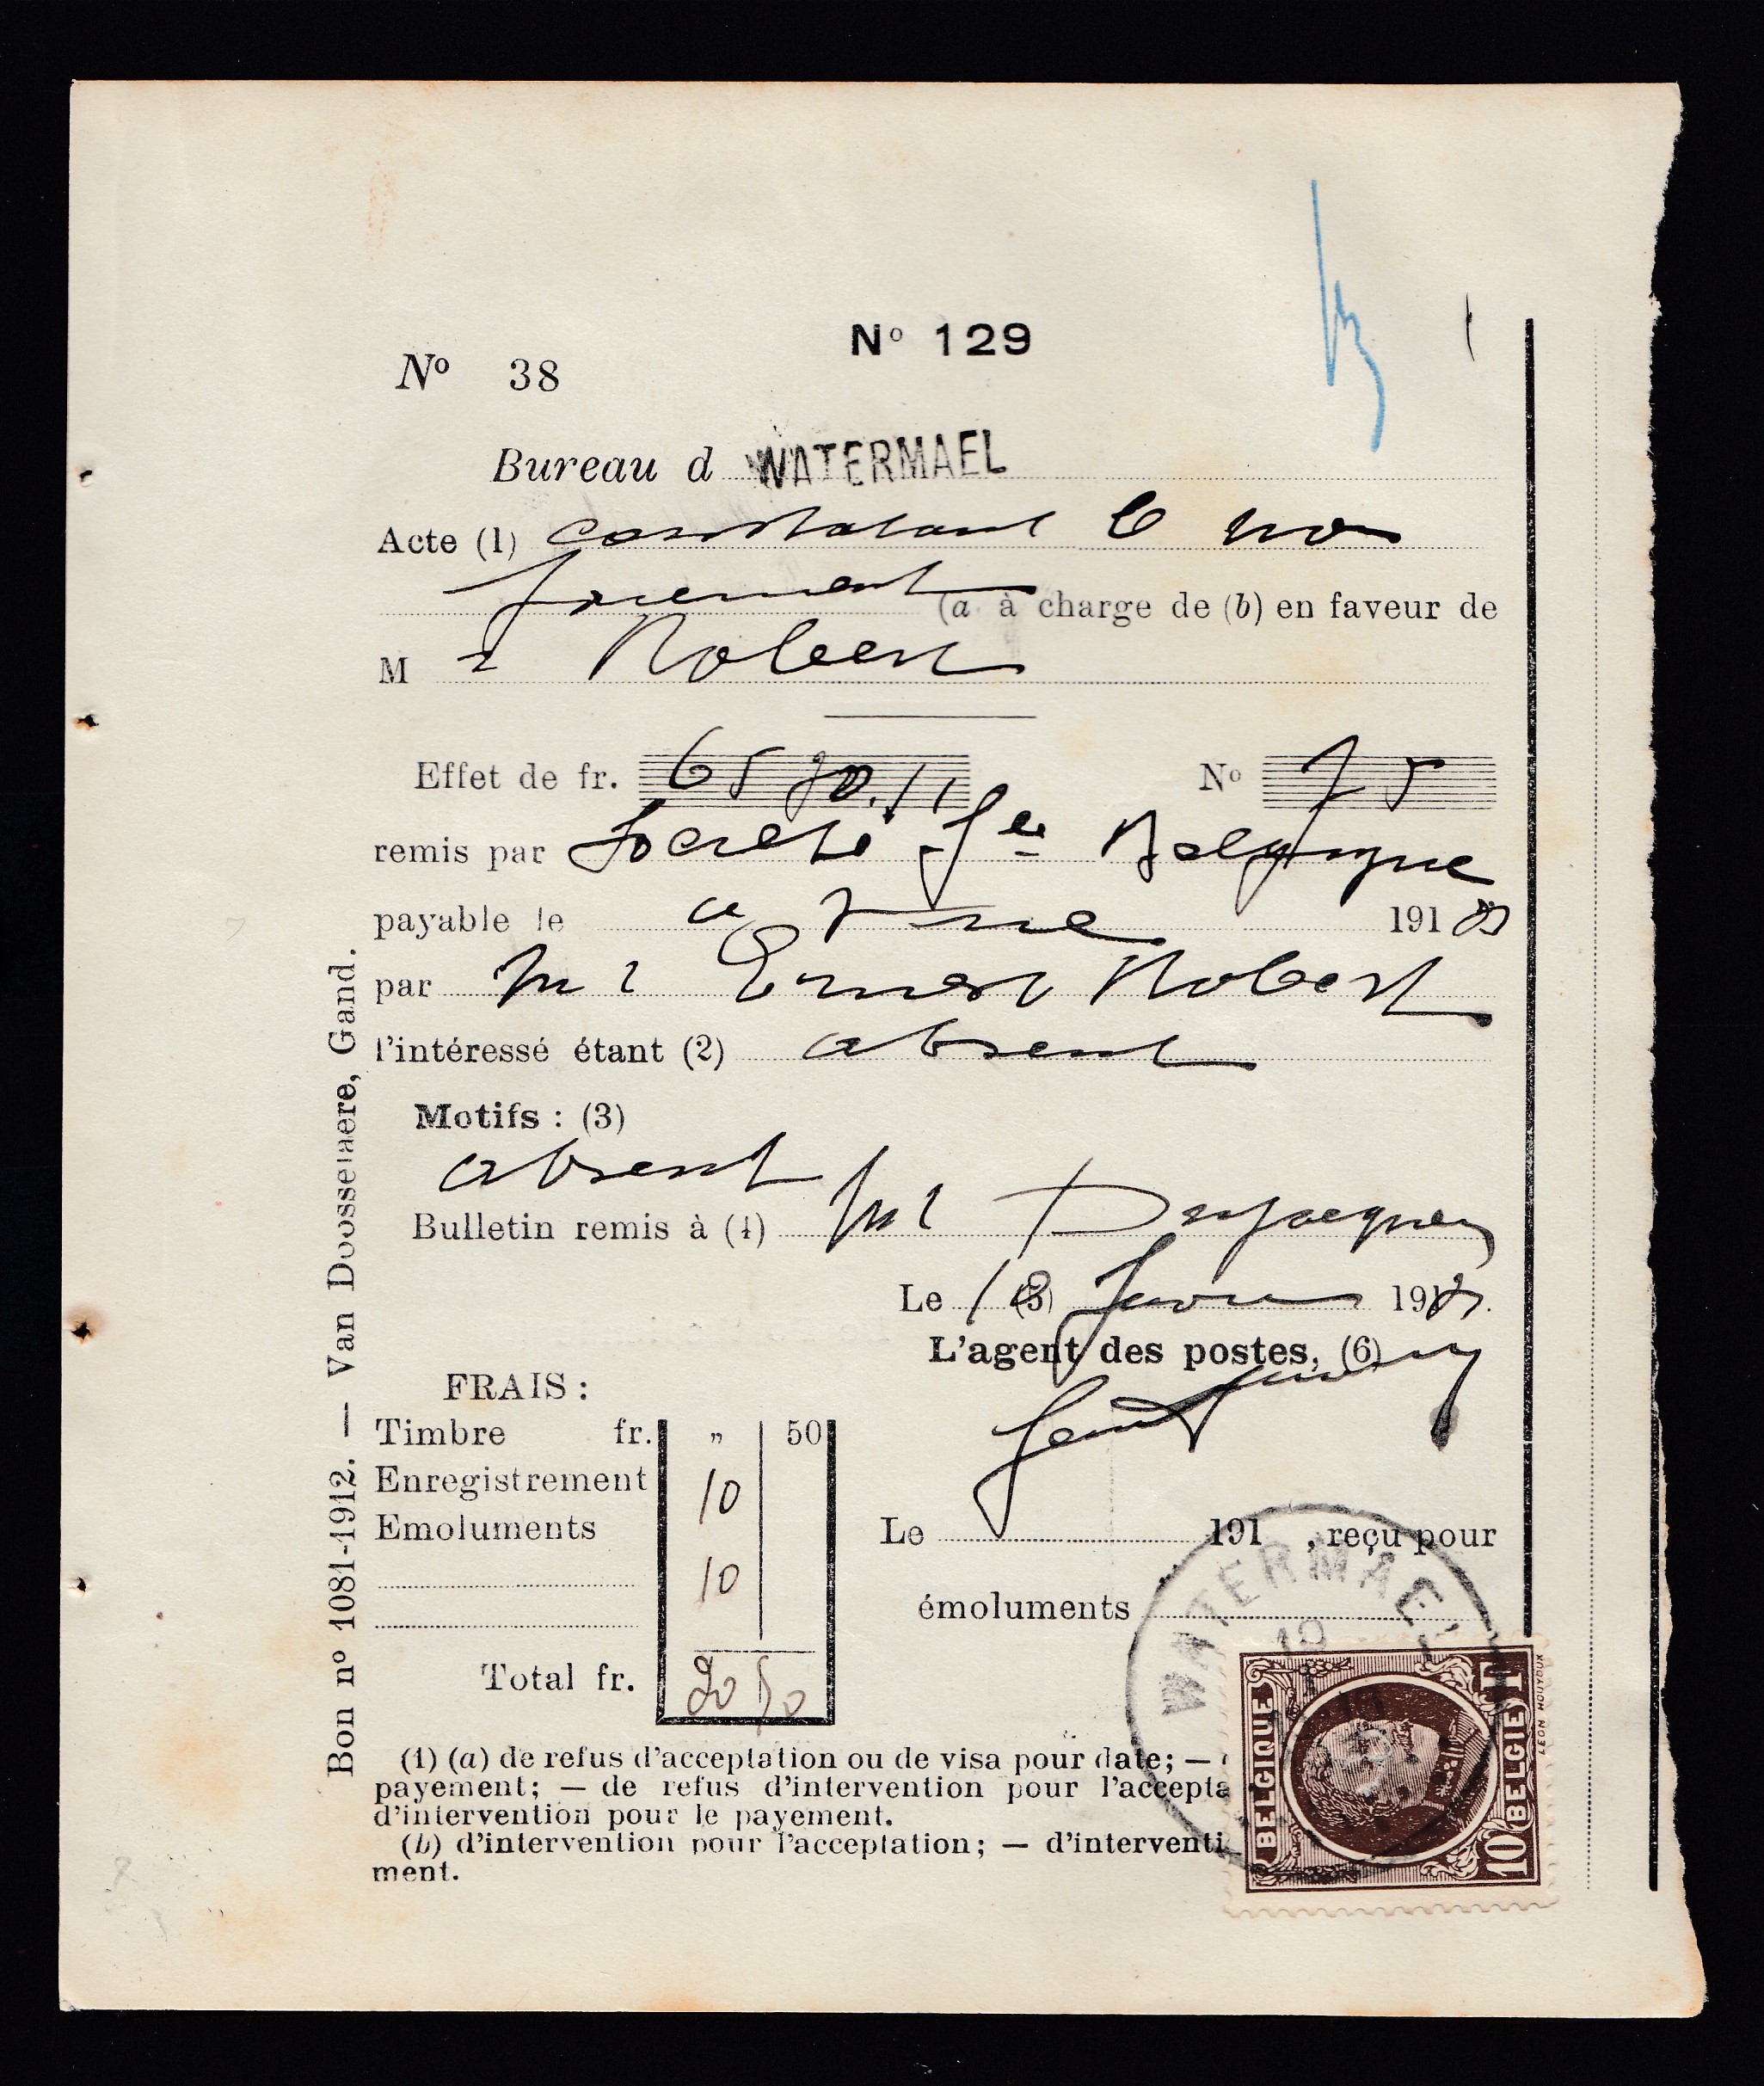 Nº 129
Nº 38
Bureau d WATERMAEL
Acte (1) constatant le no
paiement (a à charge de (b) en faveur de
M r Robert
Effet de fr. 6590.11 Nº 75
remis par Société Gle Belgique
payable le a vue 191
par Mr Ernest Robert
l'intéressé étant (2) absent
Motifs : (3)
absent
Bulletin remis à (4) Mr
Le 18 (5) Janvier 191
L'agent des postes, (6)
FRAIS :
Timbre fr. „ 50
Enregistrement 10
Emoluments
10
Total fr. 20 50
Le 191 , reçu pour
émoluments
WATERMAEL
BELGIQUE BELGIË 10
LEON HOUYOUX
(1) (a) de refus d'acceptation ou de visa pour date; —
payement; — de refus d'intervention pour l'accepta
d'intervention pour le payement.
(b) d'intervention pour l'acceptation; — d'interventi
ment.
Bon nº 1081-1912. — Van Doosselaere, Gand.